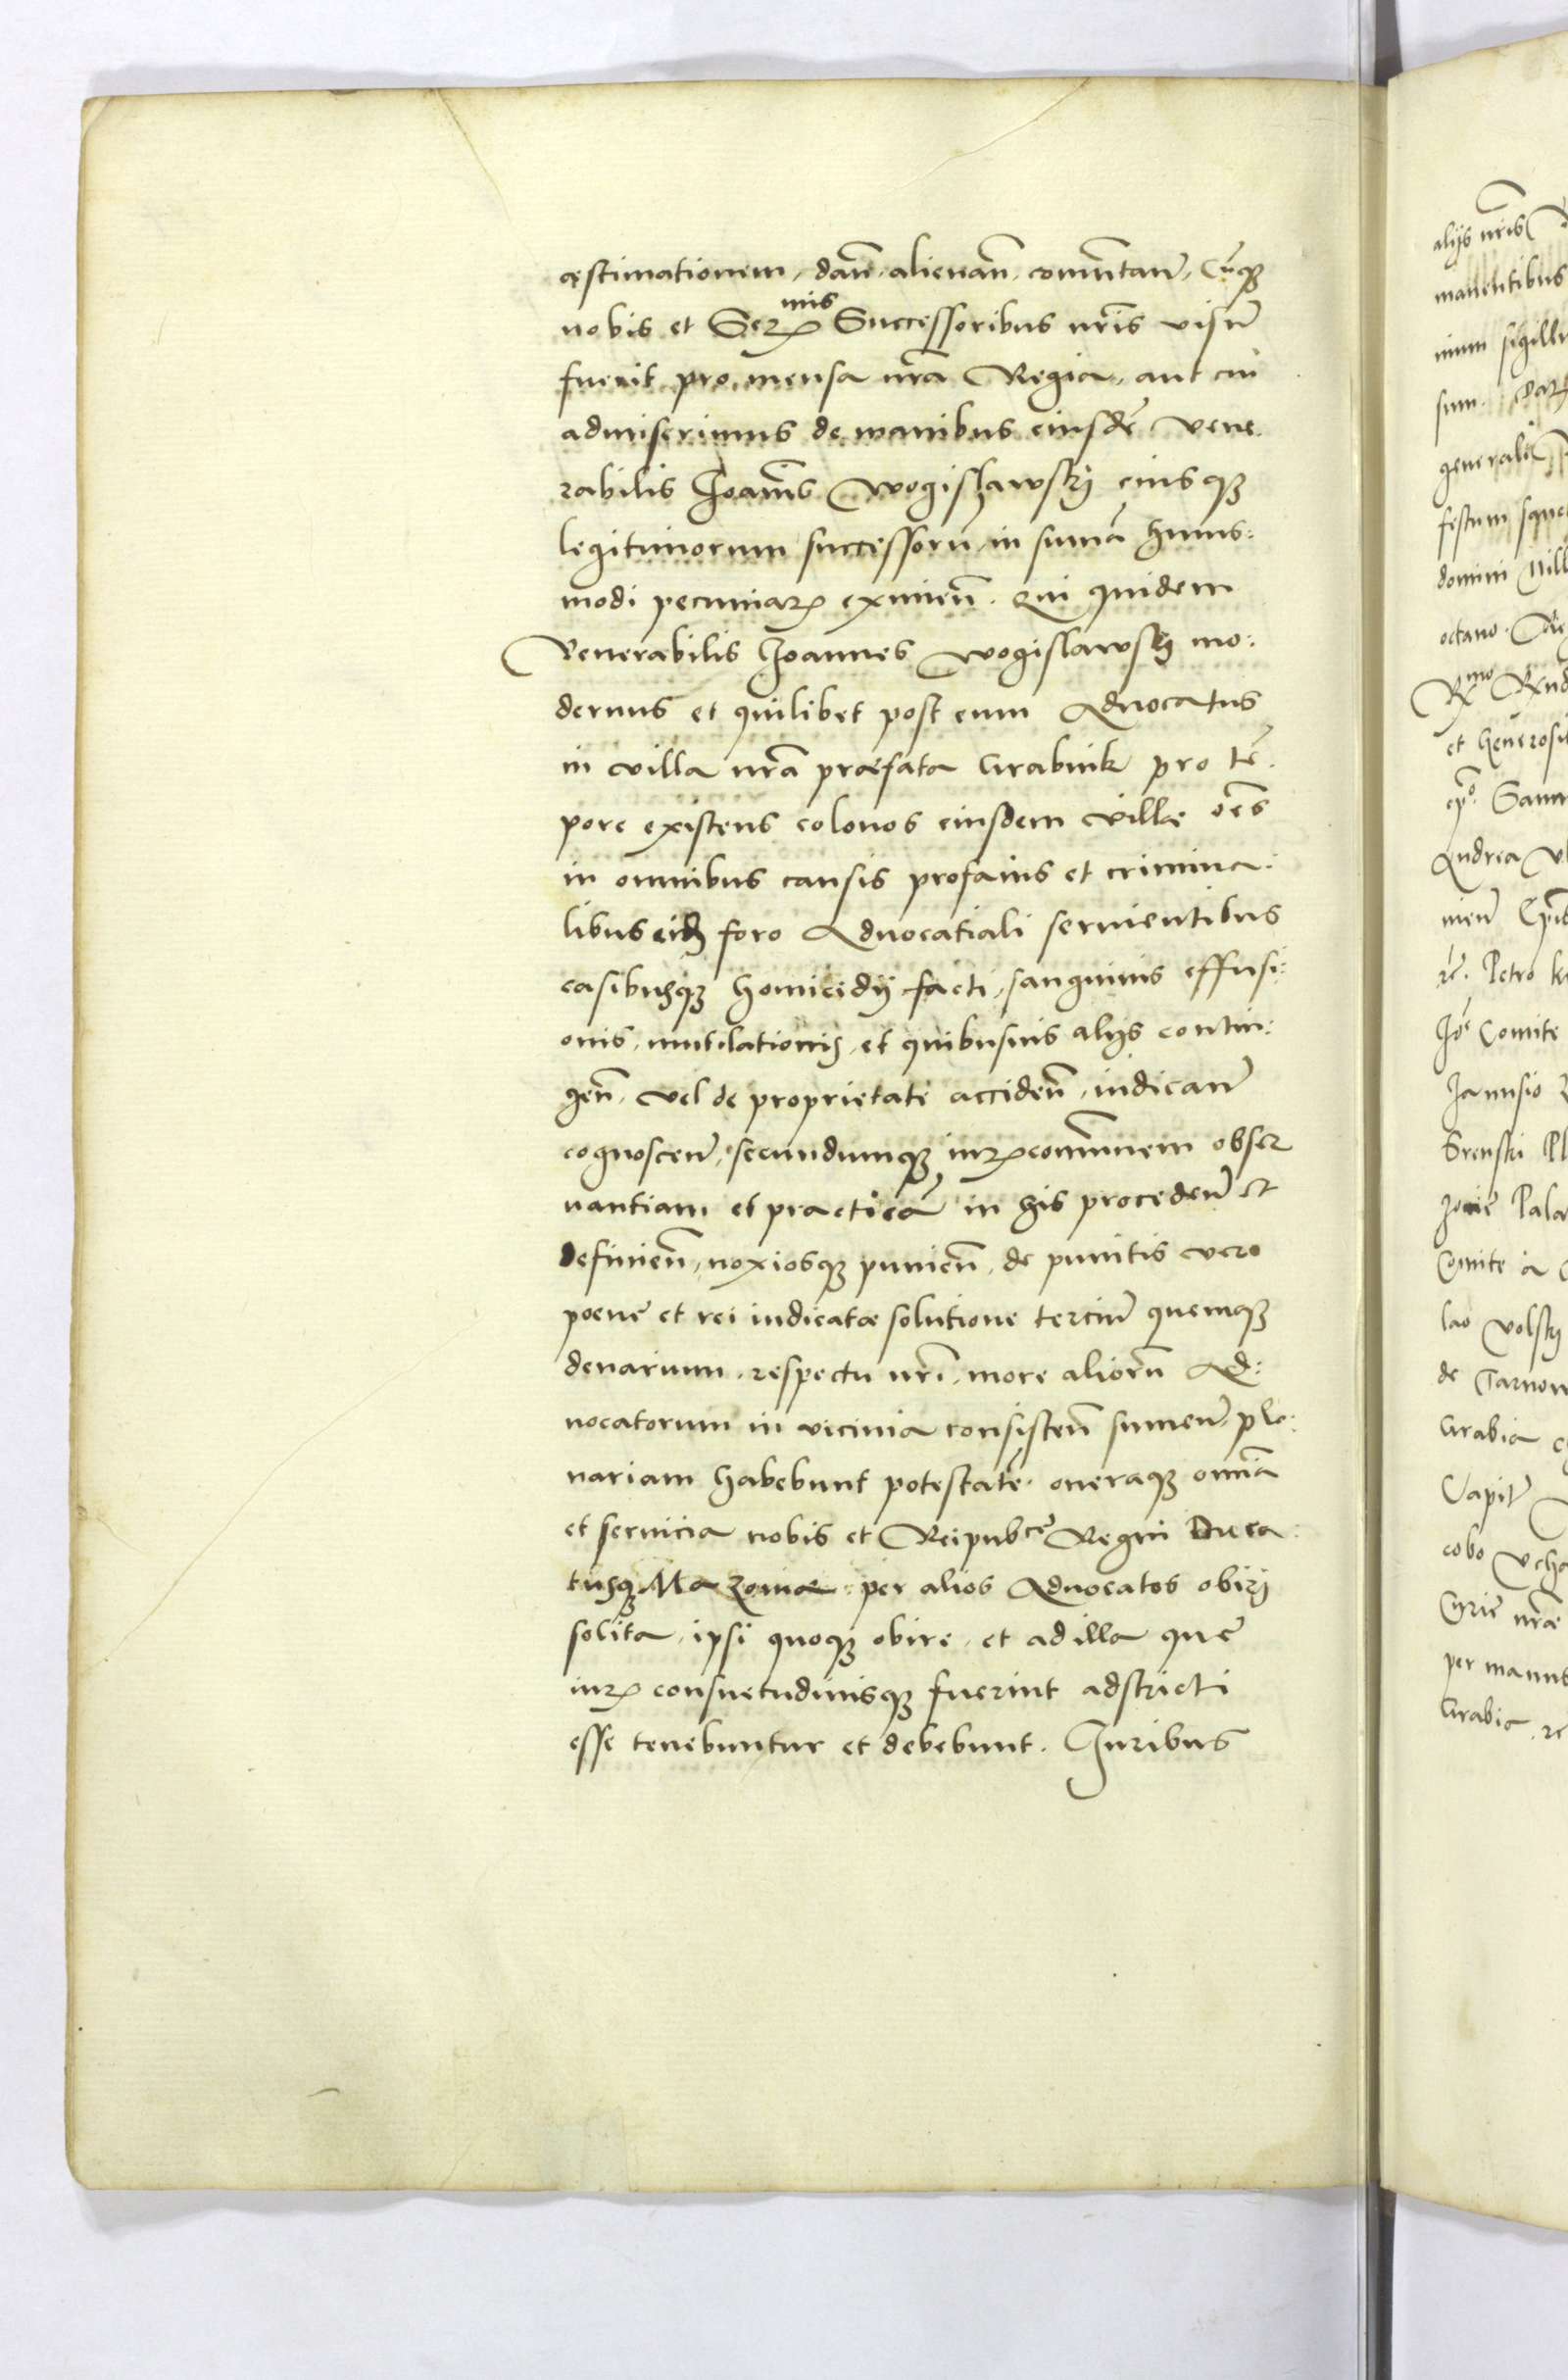 æstimationem, dañ. alienañ. com̃utañ. Cũq3
nobis et Serꝫmis Successoribus nr̃is visũ
fuerit pro mensa nrã Regia, aut cui
admiserimus de manibus eiusdẽ Vene.
rabilis Joañis Wogislawskÿ eiusq3
legitimorum successorũ in sum̃a huius:
modi pecuniarꝫ eximeñ. Qui quidem
Venerabilis Joannes Wogislawskÿ mo:
dernus et quilibet post eum Aduocatus
in villa nrã præfata Grabnik pro tẽ.
pore existens colonos eiusdem villæ oẽs
in omnibus causis profanis et crimina:
libus eid3 foro Aduocatiali seruientibus
casibusq3 homicidÿ facti, sanguinis effusi:
onis, mutilationis, et quibusuis alÿs contin:
geñ. vel de proprietate accideñ. iudicañ
cognosceñ. secundumq3 iurꝫ communem obser
uantiam et practicã in his procedeñ et
definieñ, noxiosq3 punieñ, de punitis vero
poenę et rei iudicatæ solutione terciũ quemq3
denarium, respectu nr̃i, more aliorũ Ad:
uocatorum in vicinia consisteñ sumeñ. ple:
nariam habebunt potestatẽ. oneraq3 om̃ia
et seruicia nobis et Reipubcę Regni Duca:
tusq3 Mazouiæ per alios Aduocatos obirj
solita, ipsi quoq3 obire, et ad illa quę
iurꝫ consuetudinisq3 fuerint adstricti
esse tenebuntur et debebunt. Juribus
alÿs nr̃is
manentibus
nium sigill
sum.
generali
festum
domini Mill
octauo.
Rꝫmo
et Generosi
epõ. Sam
Andrea
mień Epis
rẽ. Petro
Joẽ Comite
Janusio
Srenski
Pala
Comite a
lao Volskj
de Tarnow
Grabia
Capitñ
cobo Vcha
Curię nrãe
per manus
Grabia. re